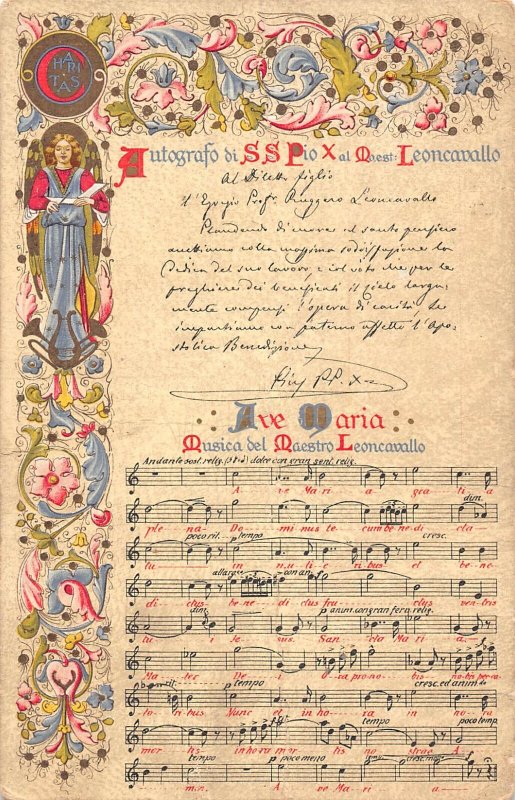 CHARITAS
Autografo di S S Pio X al Maest. Leoncavallo
Al Diletto figlio
l'Egregio Prof. Ruggero Leoncavallo
Plaudendo di cuore al santo pensiero
accettiamo colla massima sodisfazione la
Dedica del suo lavoro, e col voto che per le
preghiere dei beneficati il cielo larga-
mente compensi l'opera di carità, le
impartiamo con paterno affetto l'Apo-
stolica Benedizione
Pius PP. X
Ave Maria
Musica del Maestro Leoncavallo
Andante sost. relig. dolce con gran sent. relig.
A ve Ma ri a gra ti a
dim.
ple na Do mi nus te cum be ne di cta
poco rit. p tempo cresc.
tu in mu li e ri bus et be ne
allarg. con an. f
di ctus be ne di ctus fru ctus ven tris
dim. p anim. con gran fera relig.
tu i Je sus. San cta Ma ri a
Ma ter De i o ra pro no bis no bis pec ca
rit. p tempo cresc. ed anim.
to ri bus Nunc et in ho ra in no ra
tempo poco temp.
mor tis in ho ra mor tis no strae A
tempo p poco meno
m n. A ve Ma ri a